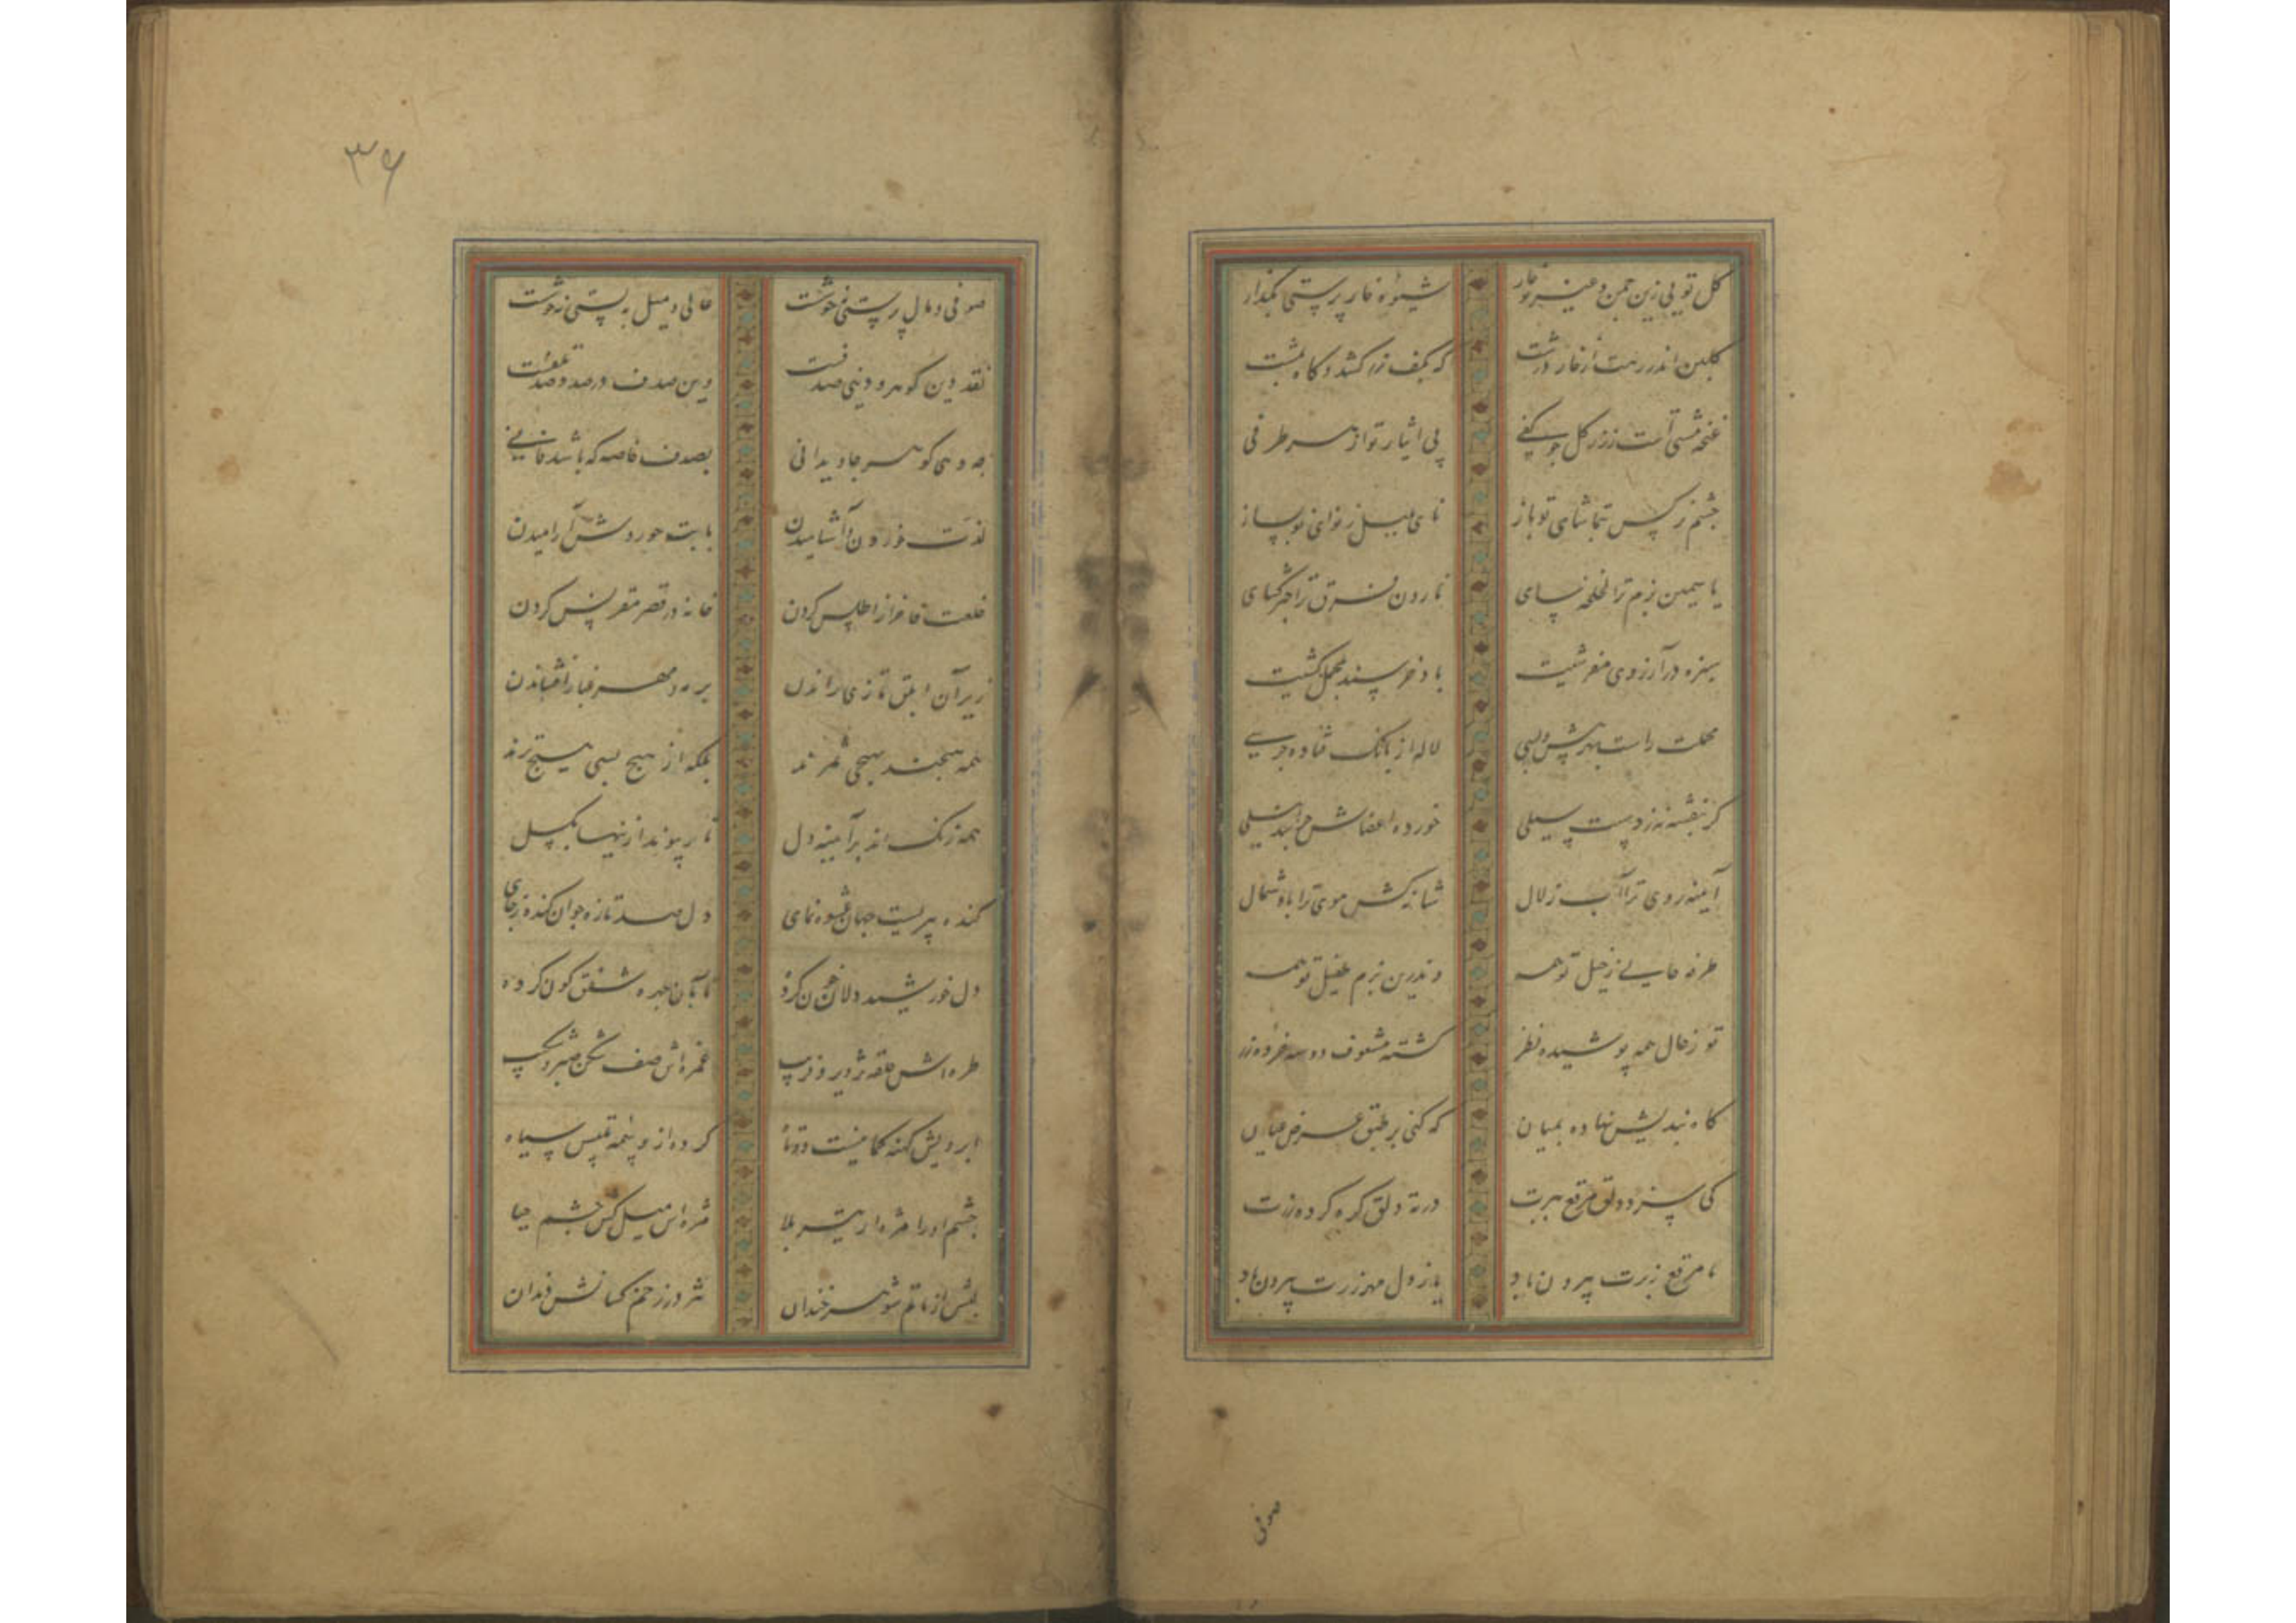 گل تویی زین چمن و غیر تو خار
شیوه خار پرستی بگذار
گلبن اندر رهت از خار درشت
که بکف زر کشد و گاه بمشت
غنچه مشتی است ز زر گل چو کفی
پی ایثار تو از هر طرفی
چشم نرگس بتماشای تو باز
نای بلبل ز نوای تو بساز
یاسمین بزم ترا لخلخه سای
نارون فرق ترا چتر گشای
سبزه در آرزوی مفرشیت
باد خرسند بمحمل کشیت
محملت راست بهر پیش و پسی
لاله از بانگ فتاده جرسی
گر بنفشه نه زدست سیلی
خورده اعضاش چرا شد نیلی
آینه روی ترا آب زلال
شانه کش موی ترا باد شمال
طرفه حالی ز خیل تو همه
وندرین بزم طفیل تو همه
تو ز حال همه پوشیده نظر
گشته مشعوف دو سه خرده زر
گاه بندیش نهاده بمیان
که کنی بر طبق عرض عیان
کی سزد دلق مرقع ببرت
در ته دلق گره کرده زرت
یا مرقع ز برت بیرون باد
یا ز دل مهر زرت بیرون باد
صوفی
۳۶
صوفی و مال پرستی نه خوشست
عالی و میل به پستی نه خوشست
نقد دین گوهر و دنیی صدفست
وین صدف در صدد صد تلفست
چه دهی گوهر جاویدانی
بصدف خاصه که باشد فانی
لذت خوردن و آشامیدن
با بت حوروش آرامیدن
خلعت فاخر از اطلس کردن
خانه در قصر مقرنس کردن
زیر ران ابلق تازی راندن
بر مه و مهر غبار افشاندن
همه هیچند بهیچی شمرند
بلکه از هیچ بسی هیچ ترند
همه زنگ اند بر آیینه دل
تار پیوند ازینها بگسل
گنده پیریست جهان عشوه نمای
دل صد تازه جوان کنده ز جای
دل خورشید دلان خون کرده
تا بآن چهره شفق گون کرده
طره اش حلقه تزویر و فریب
غمزه اش صف شکن صبر و شکیب
ابرویش کهنه کمانیست دوتا
کرده از وسمه تلبیس سیاه
چشم او را مژه از تیر بلا
مژه اش میل کش چشم حیا
لبش از ماتم شوهر خندان
تیز در زخم کسانش دندان